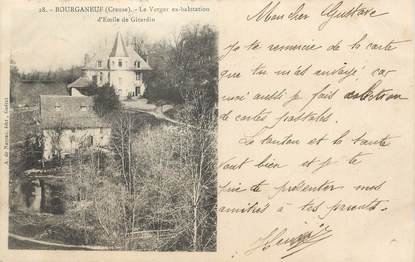 28. - BOURGANEUF (Creuse). - Le Verger ex-habitation
d'Emile de Girardin
A. de Nussac, édit., Guéret
Mon cher Gustave
Je te remercie de la carte
que tu m'as envoyé, car
moi aussi je fais collection
de cartes postales.
Le tonton et la tante
vont bien et je te
prie de présenter mes
amitiés à tes parents.